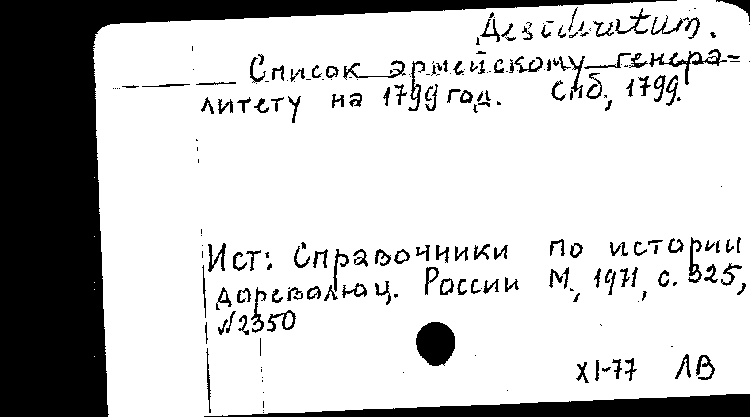 Desideratum.
Список армейскому генера-
литету на 1799 год. Спб., 1799.
Ист: Справочники по истории
дореволюц. России М., 1971, с. 325,
№2350
XI-77 ЛВ